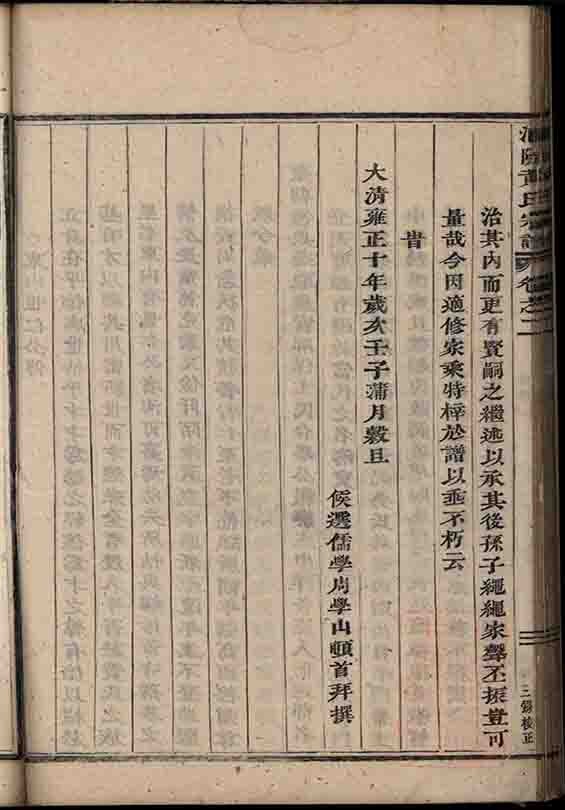 黃氏宗譜 卷之二
三錄校正
治其內而更有賢嗣之繼述以承其後孫子繩繩家聲丕振豈可
量哉今因適修家乘特梓於譜以垂不朽云
旹
大清雍正十年歲次壬子蒲月穀旦
候選儒學周學山頓首拜撰